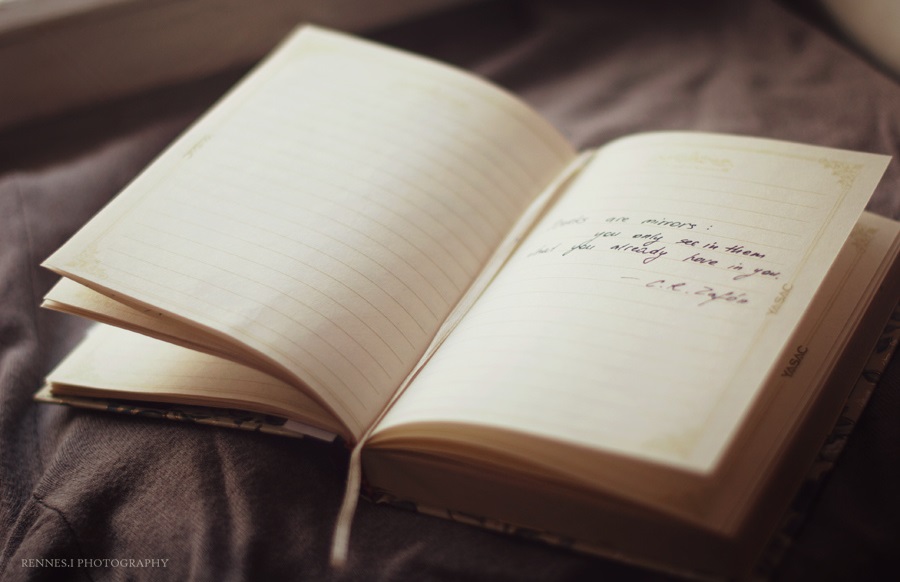 Books are mirrors:
you only see in them
what you already have in you.
— C.R. Zafón
YASAC
YASAC
RENNES.I PHOTOGRAPHY